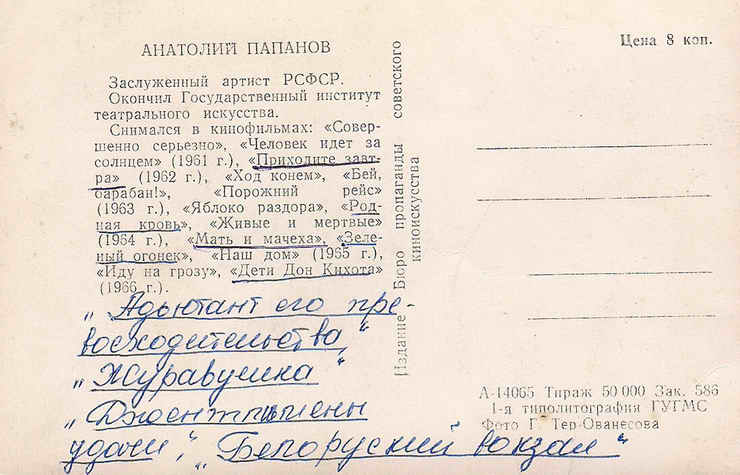 АНАТОЛИЙ ПАПАНОВ
Заслуженный артист РСФСР.
Окончил Государственный институт
театрального искусства.
Снимался в кинофильмах: «Совер-
шенно серьезно», «Человек идет за
солнцем» (1961 г.), «Приходите завт-
ра» (1962 г.), «Ход конем», «Бей,
барабан!», «Порожний рейс»
(1963 г.), «Яблоко раздора», «Род-
ная кровь», «Живые и мертвые»
(1964 г.), «Мать и мачеха», «Зеле-
ный огонек», «Наш дом» (1965 г.),
«Иду на грозу», «Дети Дон Кихота»
(1966 г.).
„Адьютант его пре-
восходительства“
„Журавушка“
„Джентльмены
удачи“, „Белоруский вокзал“
Издание Бюро пропаганды советского
киноискусства
Цена 8 коп.
А-14065 Тираж 50 000 Зак. 586
1-я типолитография ГУГМС
Фото Г. Тер-Ованесова